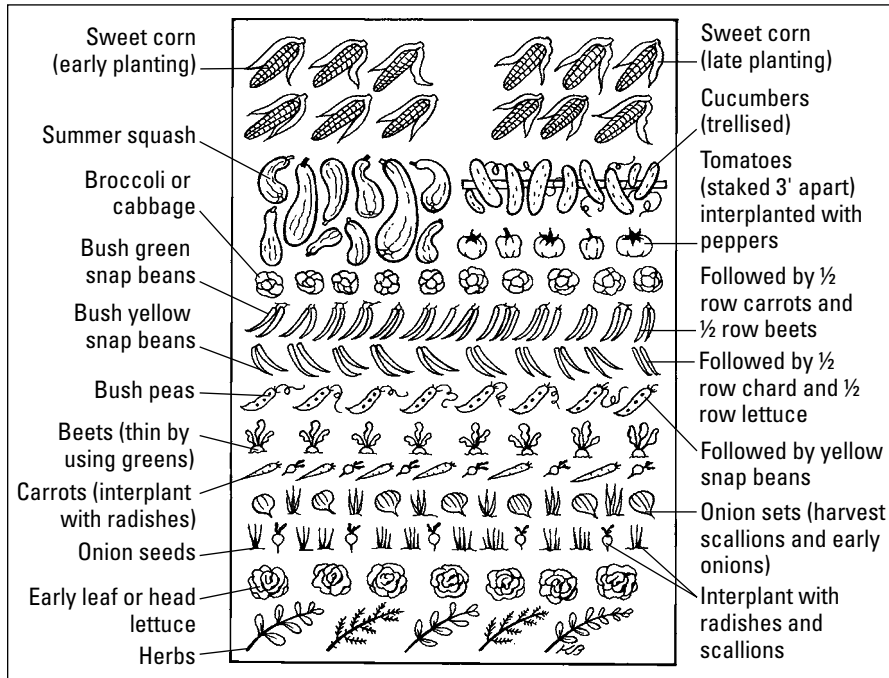 Sweet corn
(early planting)
Summer squash
Broccoli or
cabbage
Bush green
snap beans
Bush yellow
snap beans
Bush peas
Beets (thin by
using greens)
Carrots (interplant
with radishes)
Onion seeds
Early leaf or head
lettuce
Herbs
Sweet corn
(late planting)
Cucumbers
(trellised)
Tomatoes
(staked 3' apart)
interplanted with
peppers
Followed by ½
row carrots and
½ row beets
Followed by ½
row chard and ½
row lettuce
Followed by yellow
snap beans
Onion sets (harvest
scallions and early
onions)
Interplant with
radishes and
scallions
KB